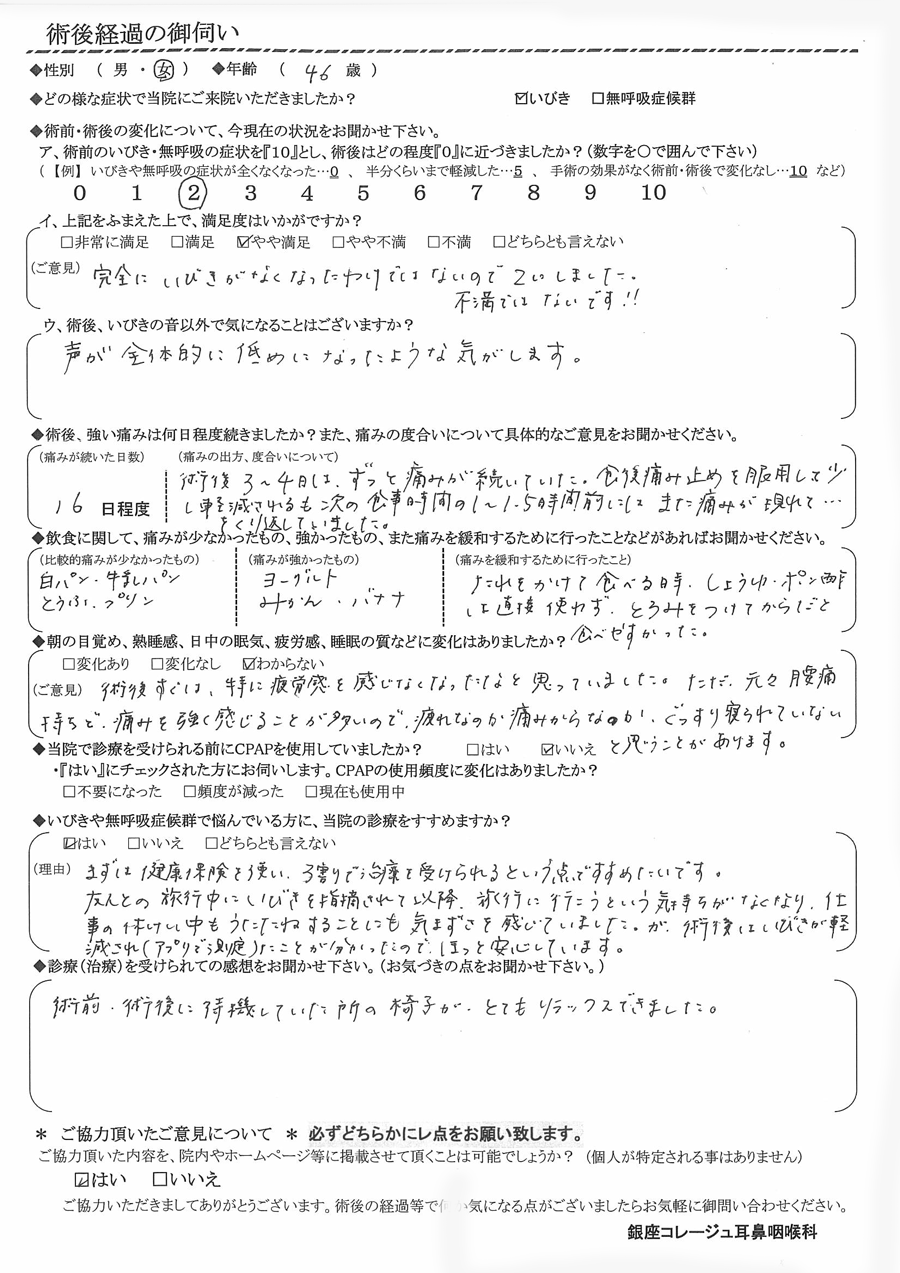 術後経過の御伺い
◆性別 (男・女) ◆年齢 ( 46 歳)
◆どの様な症状で当院にご来院いただきましたか? ☑いびき □無呼吸症候群
◆術前・術後の変化について、今現在の状況をお聞かせ下さい。
ア、術前のいびき・無呼吸の症状を『10』とし、術後はどの程度『0』に近づきましたか?(数字を〇で囲んで下さい)
(【例】いびきや無呼吸の症状が全くなくなった…0 、 半分くらいまで軽減した…5 、 手術の効果がなく術前・術後で変化なし…10 など)
0 1 2 3 4 5 6 7 8 9 10
イ、上記をふまえた上で、満足度はいかがですか?
□非常に満足 □満足 ☑やや満足 □やや不満 □不満 □どちらとも言えない
(ご意見) 完全にいびきがなくなったわけではないので2にしました。
不満ではないです!!
ウ、術後、いびきの音以外で気になることはございますか?
声が全体的に低めになったような気がします。
◆術後、強い痛みは何日程度続きましたか?また、痛みの度合いについて具体的なご意見をお聞かせください。
(痛みが続いた日数) (痛みの出方、度合いについて)
16 日程度
術後3〜4日は、ずっと痛みが続いていた。食後痛み止めを服用して少
し軽減されるも次の食事時間の1〜1.5時間前には また痛みが現れて…
をくり返していました。
◆飲食に関して、痛みが少なかったもの、強かったもの、また痛みを緩和するために行ったことなどがあればお聞かせください。
(比較的痛みが少なかったもの) (痛みが強かったもの) (痛みを緩和するために行ったこと)
白パン・牛乳パン
とうふ、プリン
ヨーグルト
みかん・バナナ
たれをかけて食べる時、しょうゆ・ポン酢
は直接使わず、とろみをつけてからだと
食べやすかった。
◆朝の目覚め、熟睡感、日中の眠気、疲労感、睡眠の質などに変化はありましたか?
□変化あり □変化なし ☑わからない
(ご意見) 術後すぐは、特に疲労感を感じなくなったなと思っていました。ただ、元々腰痛
持ちで、痛みを強く感じることが多いので、疲れなのか痛みからなのか、ぐっすり寝られていない
と思うことがあります。
◆当院で診療を受けられる前にCPAPを使用していましたか? □はい ☑いいえ
・『はい』にチェックされた方にお伺いします。CPAPの使用頻度に変化はありましたか?
□不要になった □頻度が減った □現在も使用中
◆いびきや無呼吸症候群で悩んでいる方に、当院の診療をすすめますか?
☑はい □いいえ □どちらとも言えない
(理由) まずは健康保険を使い、3割りで治療を受けられるという点ですすめたいです。
友人との旅行中にいびきを指摘されて以降、旅行に行こうという気持ちがなくなり、仕
事の休けい中もうたたねすることにも気まずさを感じていました。が、術後はいびきが軽
減され(アプリで測定)たことが分かったので、ほっと安心しています。
◆診療(治療)を受けられての感想をお聞かせ下さい。(お気づきの点をお聞かせ下さい。)
術前・術後に待機していた所の椅子が、とてもリラックスできました。
＊ ご協力頂いたご意見について ＊ 必ずどちらかにレ点をお願い致します。
ご協力頂いた内容を、院内やホームページ等に掲載させて頂くことは可能でしょうか? (個人が特定される事はありません)
☑はい □いいえ
ご協力いただきましてありがとうございます。術後の経過等で何か気になる点がございましたらお気軽に御問い合わせください。
銀座コレージュ耳鼻咽喉科